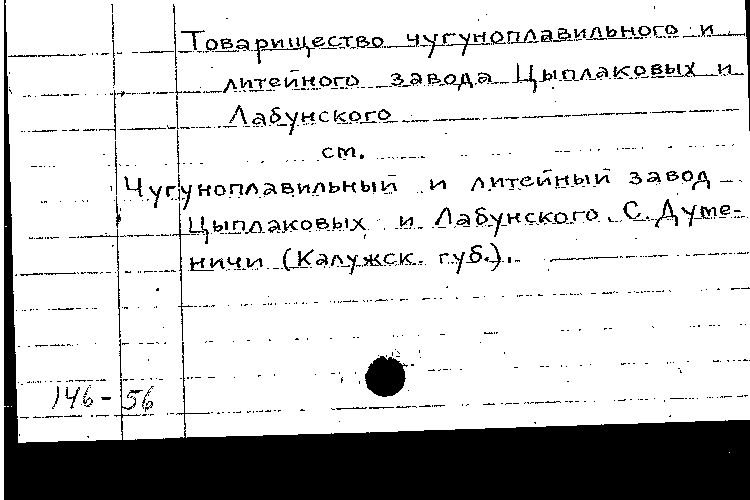 Товарищество чугуноплавильного и
литейного завода Цыплаковых и
Лабунского
см.
Чугуноплавильный и литейный завод
Цыплаковых и Лабунского. С. Думе-
ничи (Калужск. губ.).
146-56